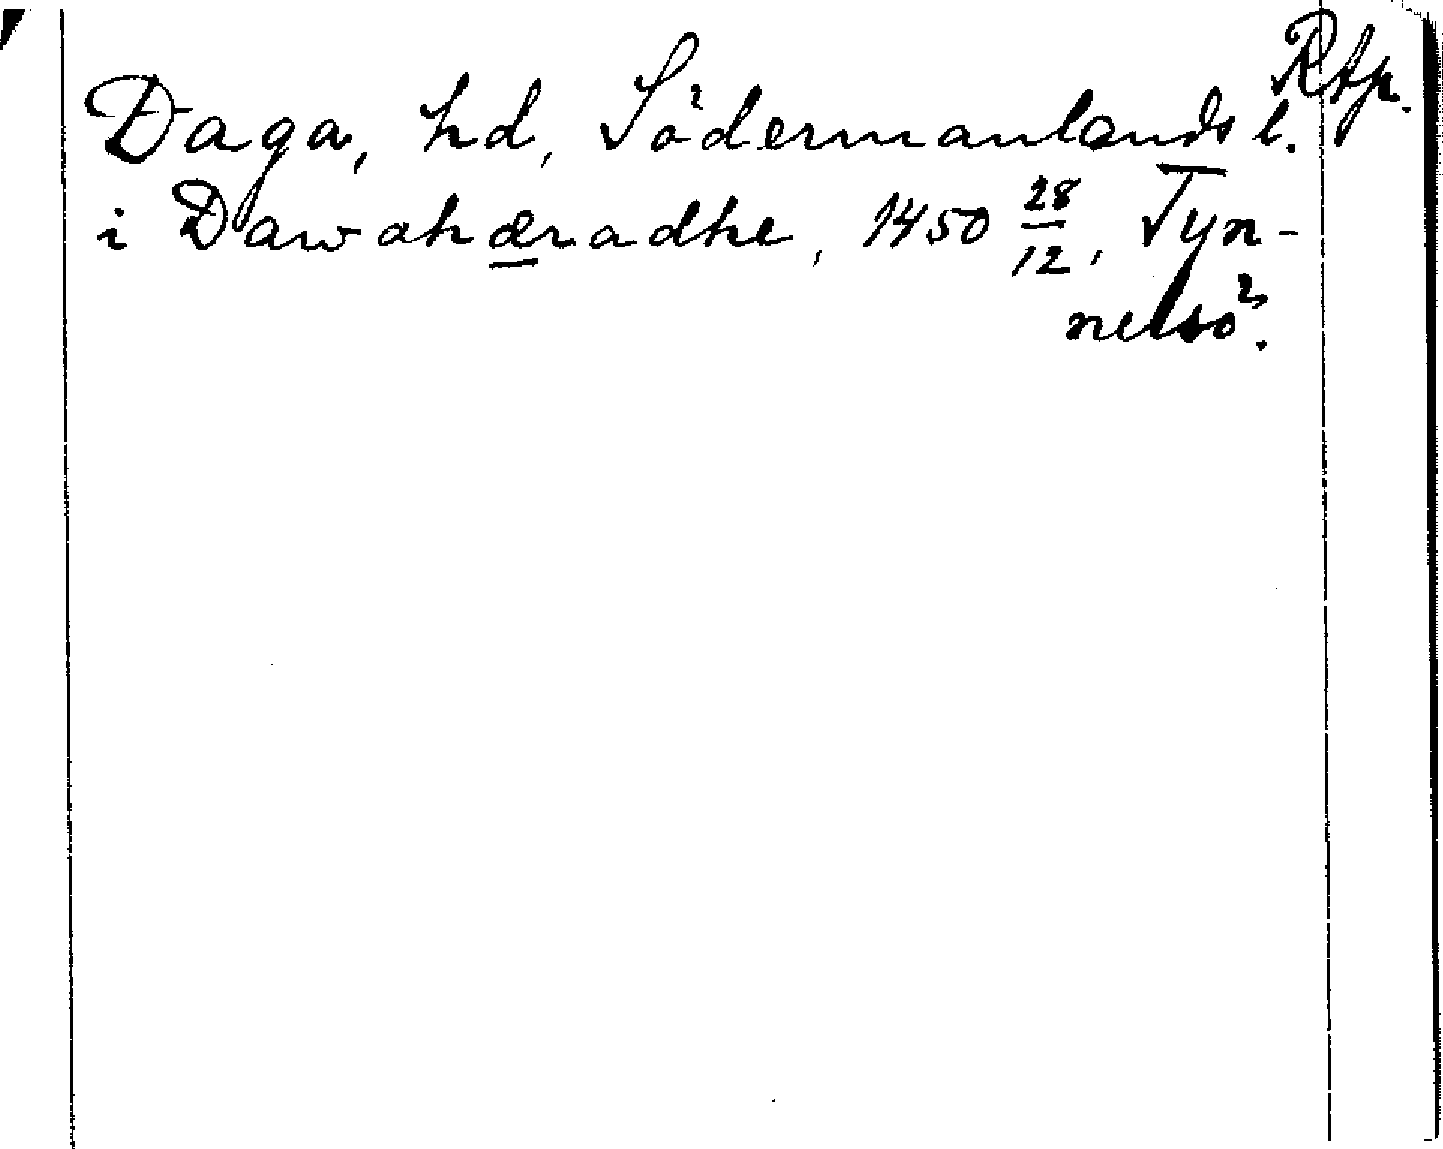 Rtp.
Daga, hd, Södermanlands l.
i Dawahæradhe, 1450 28/12, Tyn-
nelsö.